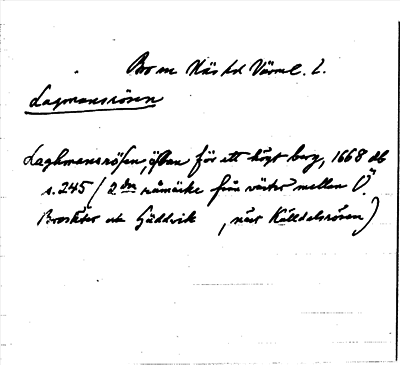 Bro sn Näs hd Värml. l.
Lagmansrösen
Laghmansrösen, öfvan för ett högt berg, 1668 db
s. 245 / 2 dra råmärke från väster mellan Ö.
och Gäddvik, näst Källdalsrösen)